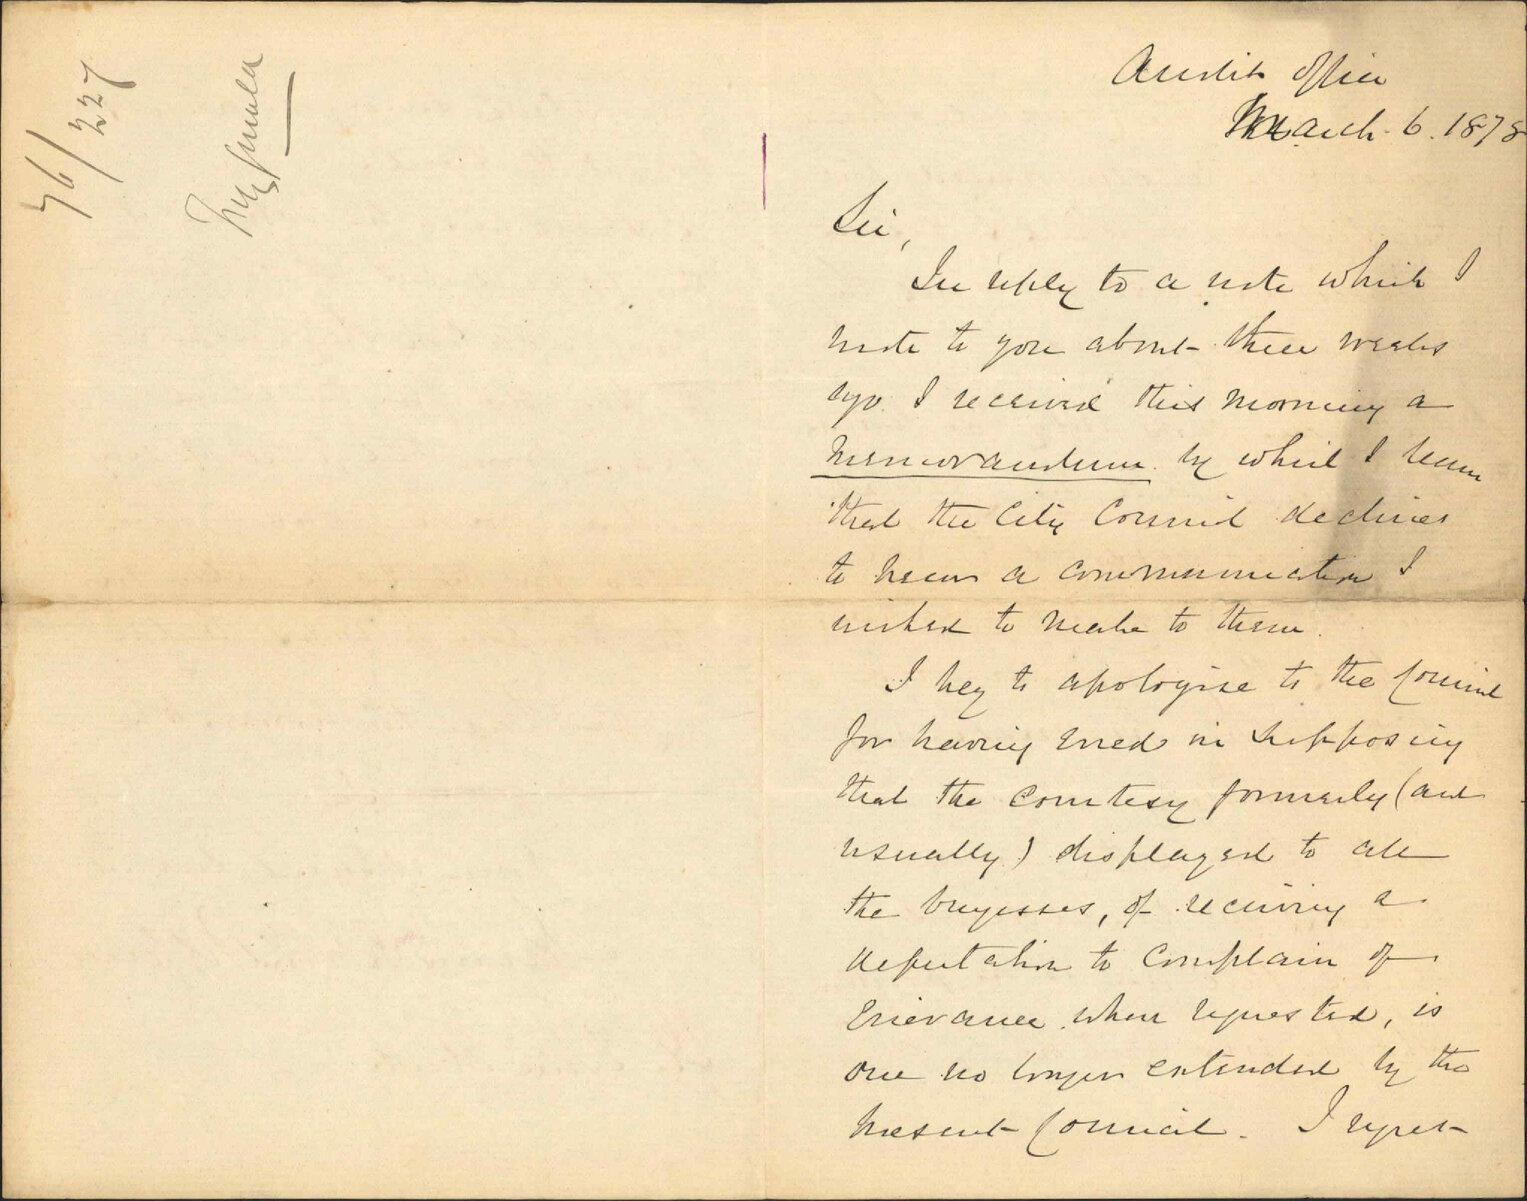 76/227
Audit Office
March. 6. 1878
Sir,
In reply to a note which I
wrote to you about three weeks
ago I received this morning a
memorandum by which I learn
that the City Council declines
to hear a communication I
wished to make to them.
I beg to apologise to the Council
for having erred in supposing
that the courtesy formerly (and
usually) displayed to all
the burgesses, of receiving a
deputation to complain of
grievance when requested, is
one no longer extended by the
present Council. I regret